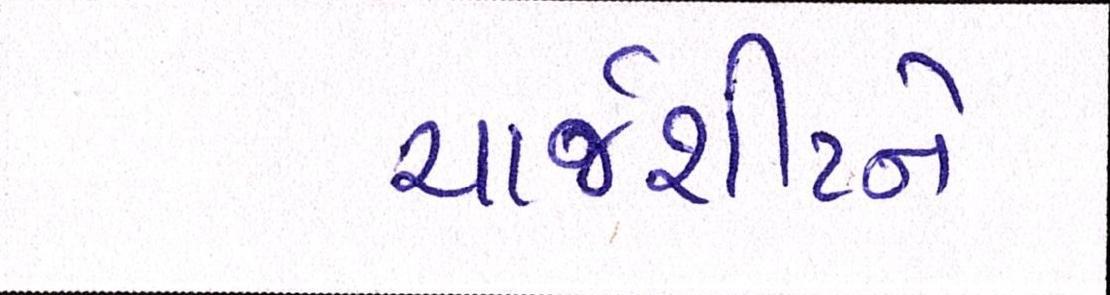 ચાર્જશીટને